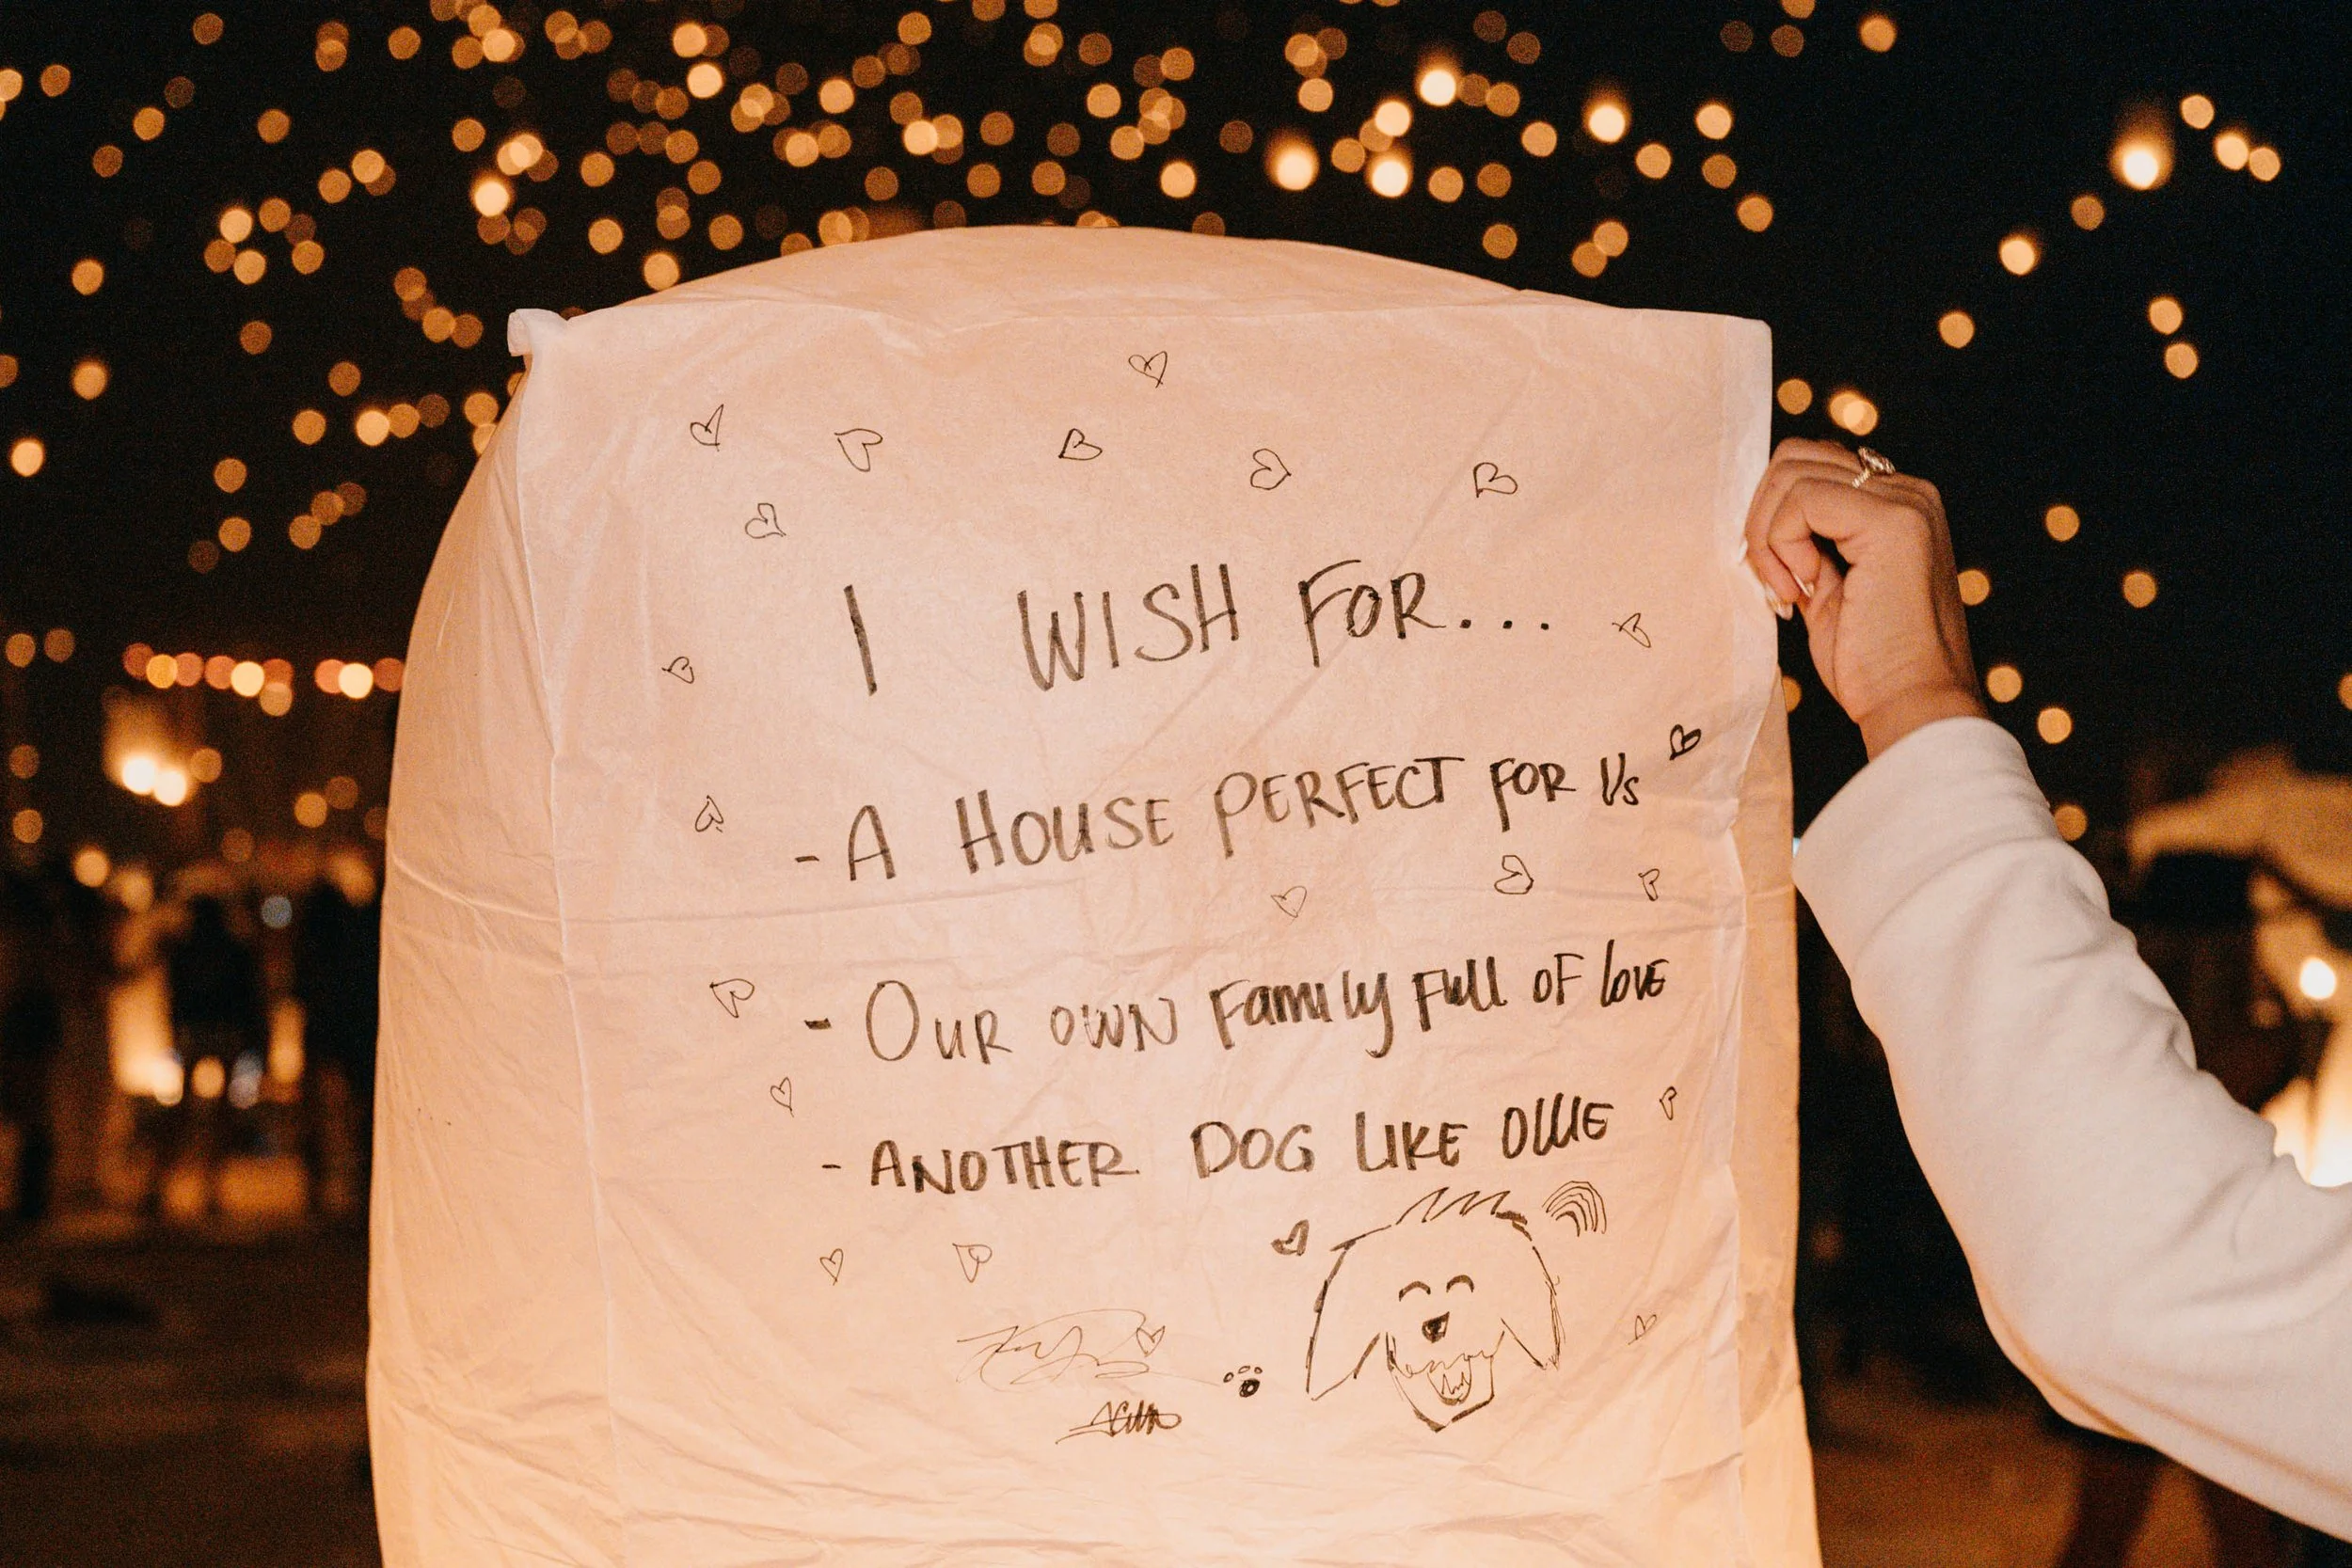 I WISH FOR...
- A HOUSE PERFECT FOR Us
- OUR OWN Family Full OF lOVE
- ANOTHER DOG LIKE OLLIE